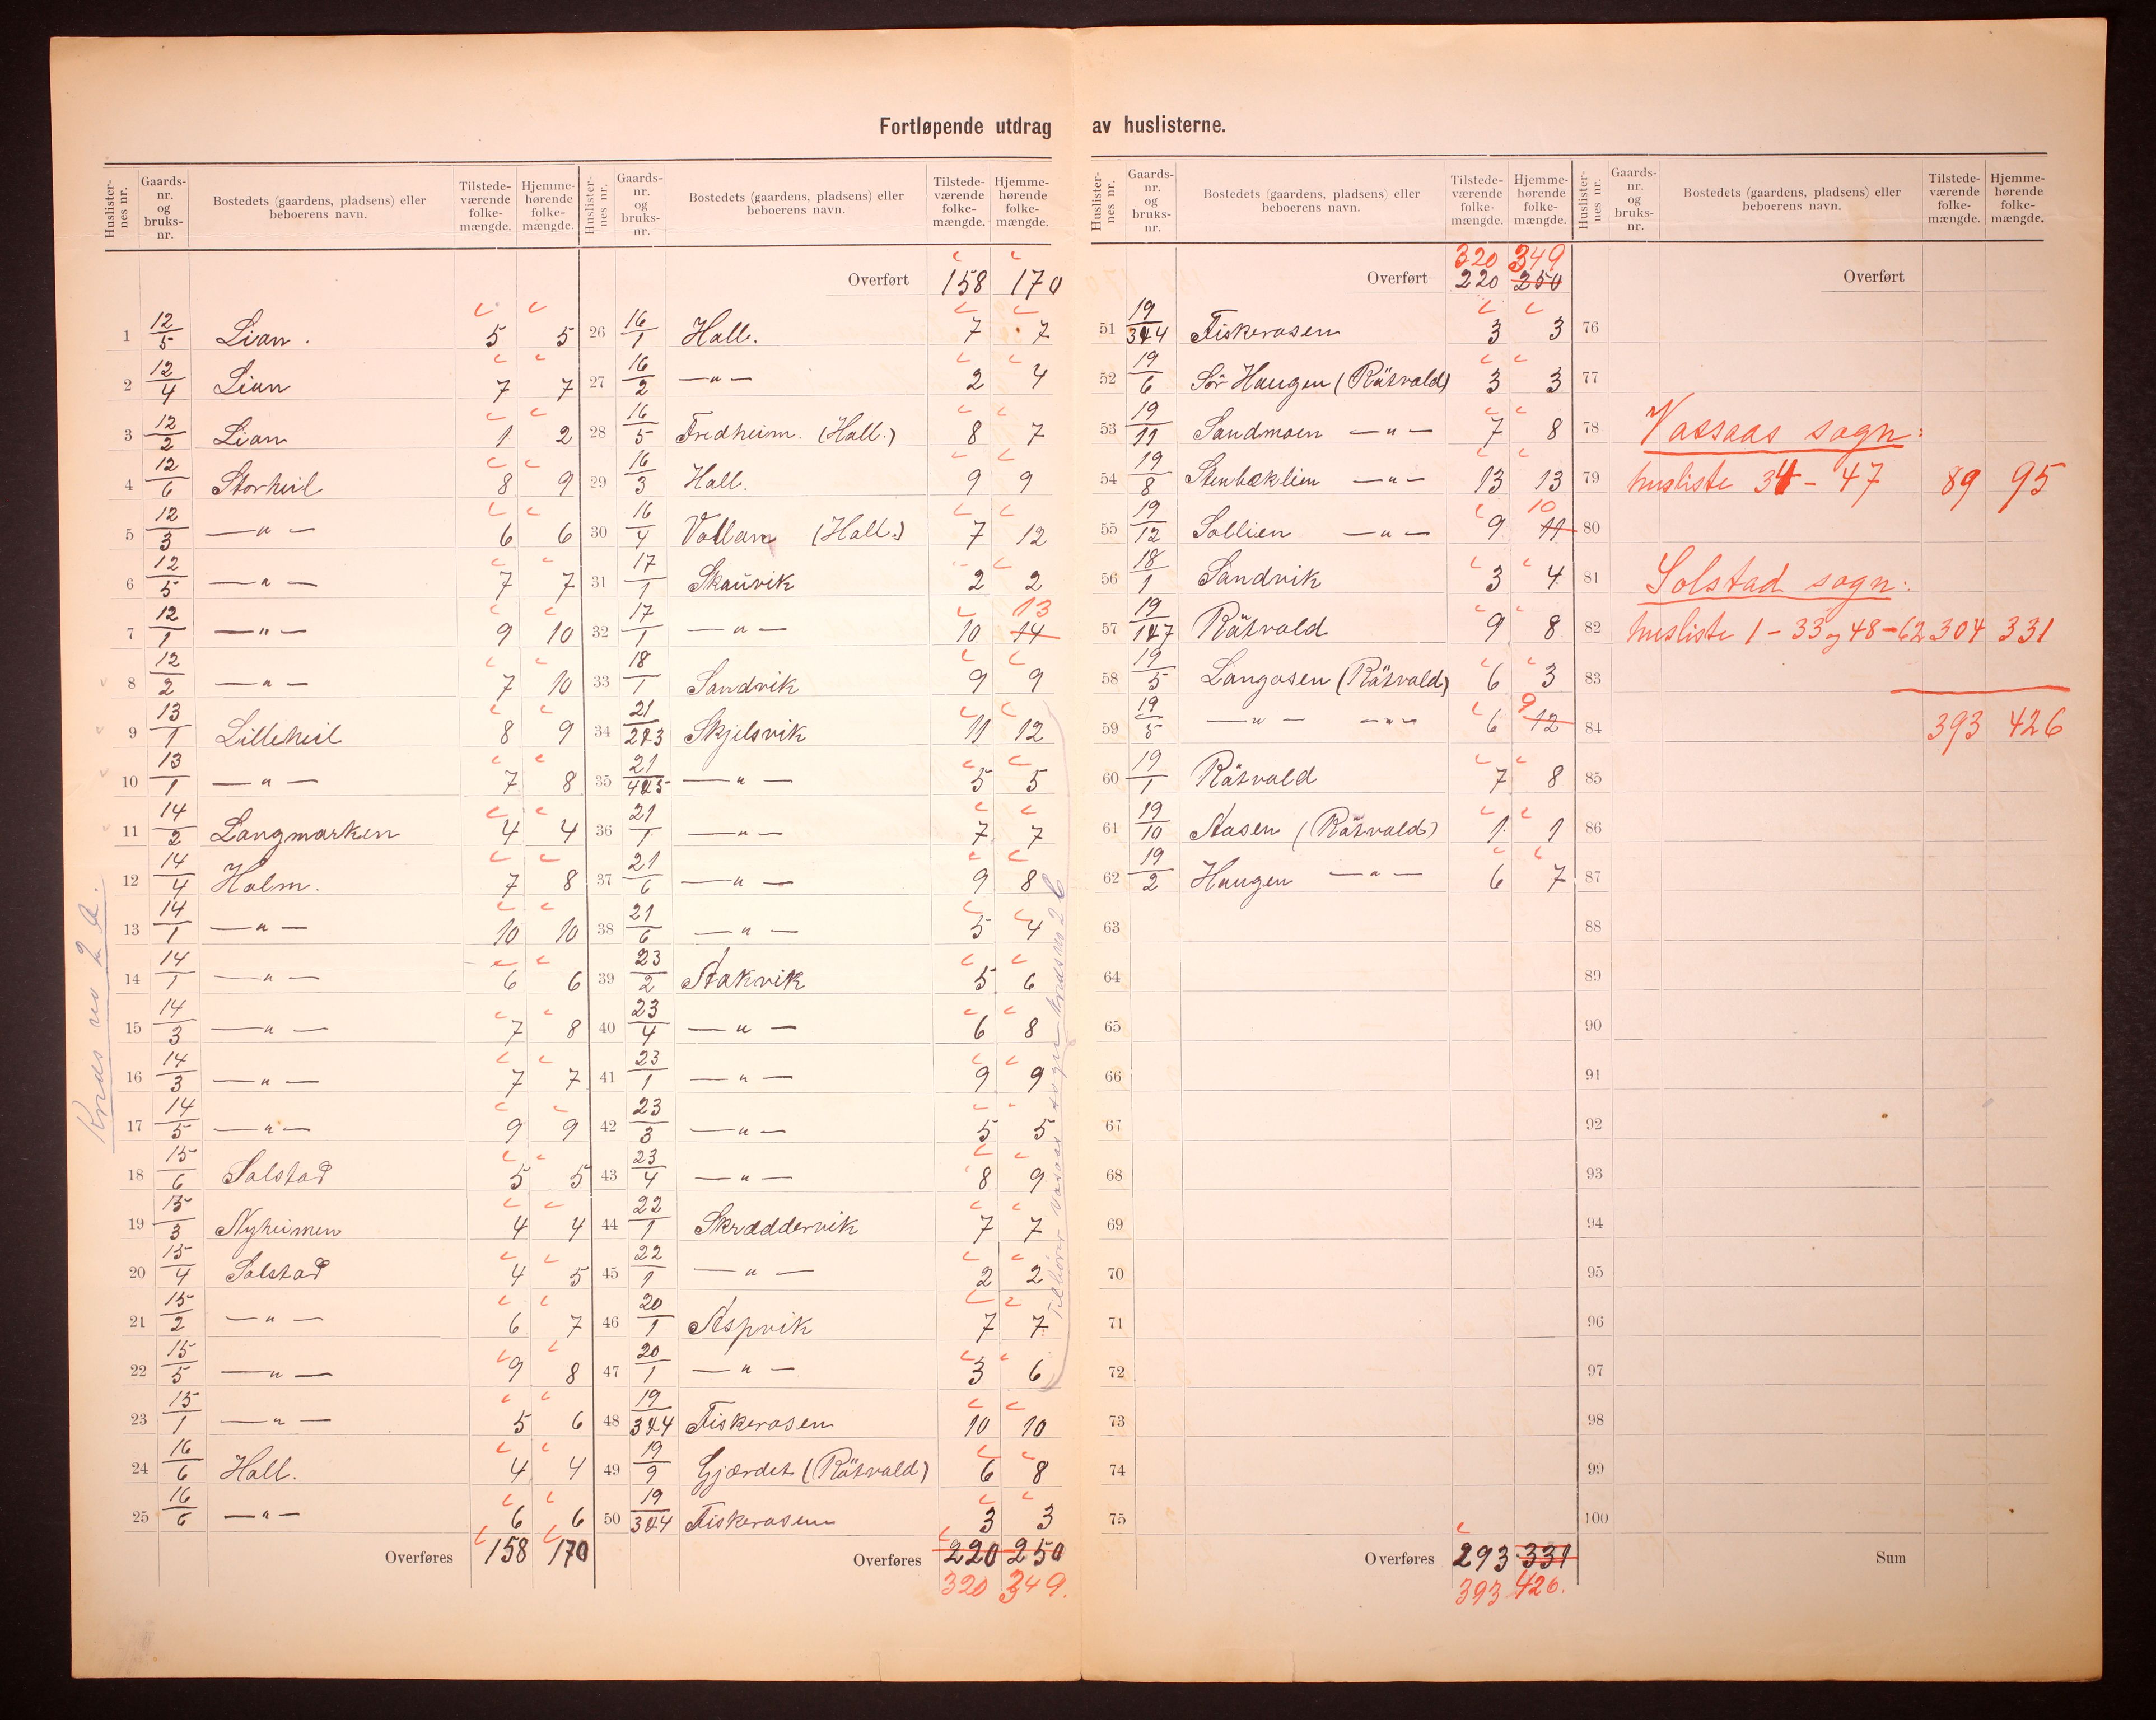 Fortløpende utdrag av huslisterne.
Huslister-nes nr. | Gaards-nr. og bruks-nr. | Bostedets (gaardens, pladsens) eller beboerens navn. | Tilstede-værende folke-mængde. | Hjemme-hørende folke-mængde.
1 12/5 Lian. 5 5
2 12/4 Lian 7 7
3 12/2 Lian 1 2
4 12/6 Storheil 8 9
5 12/3 —"— 6 6
6 12/5 —"— 7 7
7 12/1 —"— 9 10
8 12/2 —"— 7 10
9 13/1 Lilleheil 8 9
10 13/1 —"— 7 8
11 14/2 Langmarken 4 4
12 14/4 Holm. 7 8
13 14/1 —"— 10 10
14 14/1 —"— 6 6
15 14/3 —"— 7 8
16 14/3 —"— 7 7
17 14/5 —"— 9 9
18 15/6 Solstad 5 5
19 15/3 Nyheimen 4 4
20 15/4 Solstad 4 5
21 15/2 —"— 6 7
22 15/5 —"— 9 8
23 15/1 —"— 5 6
24 16/6 Hall. 4 4
25 16/6 —"— 6 6
Overføres 158 170
Kreds no 2 a.
Huslister-nes nr. | Gaards-nr. og bruks-nr. | Bostedets (gaardens, pladsens) eller beboerens navn. | Tilstede-værende folke-mængde. | Hjemme-hørende folke-mængde.
Overført 158 170
26 16/1 Hall. 7 7
27 16/2 —"— 2 4
28 16/5 Fredheim. (Hall.) 8 7
29 16/3 Hall. 9 9
30 16/4 Vollan (Hall.) 7 12
31 17/1 Skauvik 2 2
32 17/1 —"— 10 14 13
33 18/1 Sandvik 9 9
34 21/2&3 Skjelsvik 11 12
35 21/4&5 —"— 5 5
36 21/1 —"— 7 7
37 21/6 —"— 9 8
38 21/6 —"— 5 4
39 23/2 Aakvik 5 6
40 23/4 —"— 6 8
41 23/1 —"— 9 9
42 23/3 —"— 5 5
43 23/4 —"— 8 9
44 22/1 Skræddervik 7 7
45 22/1 —"— 2 2
46 20/1 Aspvik 7 7
47 20/1 —"— 3 6
48 19/3&4 Fiskerosen 10 10
49 19/9 Gjærdet (Råtvold) 6 8
50 19/3&4 Fiskerosen 3 3
Overføres 220 250
320 349.
Tilhører Vasaas sogn kreds no 2 b
Huslister-nes nr. | Gaards-nr. og bruks-nr. | Bostedets (gaardens, pladsens) eller beboerens navn. | Tilstede-værende folke-mængde. | Hjemme-hørende folke-mængde.
320 349
Overført 220 250
51 19/3&4 Fiskerosen 3 3
52 19/6 Sør Haugen (Råtvold) 3 3
53 19/11 Sandmoen —"— 7 8
54 19/8 Stenbæklien —"— 13 13
55 19/12 Sollien —"— 9 11 10
56 18/1 Sandvik 3 4
57 19/1&7 Råtvold 9 8
58 19/5 Langosen (Råtvold) 6 3
59 19/5 —"— —"— 6 12 9
60 19/1 Råtvold 7 8
61 19/10 Aasen (Råtvold) 1 1
62 19/2 Haugen —"— 6 7
63
64
65
66
67
68
69
70
71
72
73
74
75
Overføres 293 331
393 426.
Huslister-nes nr. | Gaards-nr. og bruks-nr. | Bostedets (gaardens, pladsens) eller beboerens navn. | Tilstede-værende folke-mængde. | Hjemme-hørende folke-mængde.
Overført
76
77
78 Vassaas sogn:
79 husliste 34 - 47 89 95
80
81 Solstad sogn:
82 husliste 1 - 33 og 48 - 62 304 331
83
84 393 426
85
86
87
88
89
90
91
92
93
94
95
96
97
98
99
100
Sum